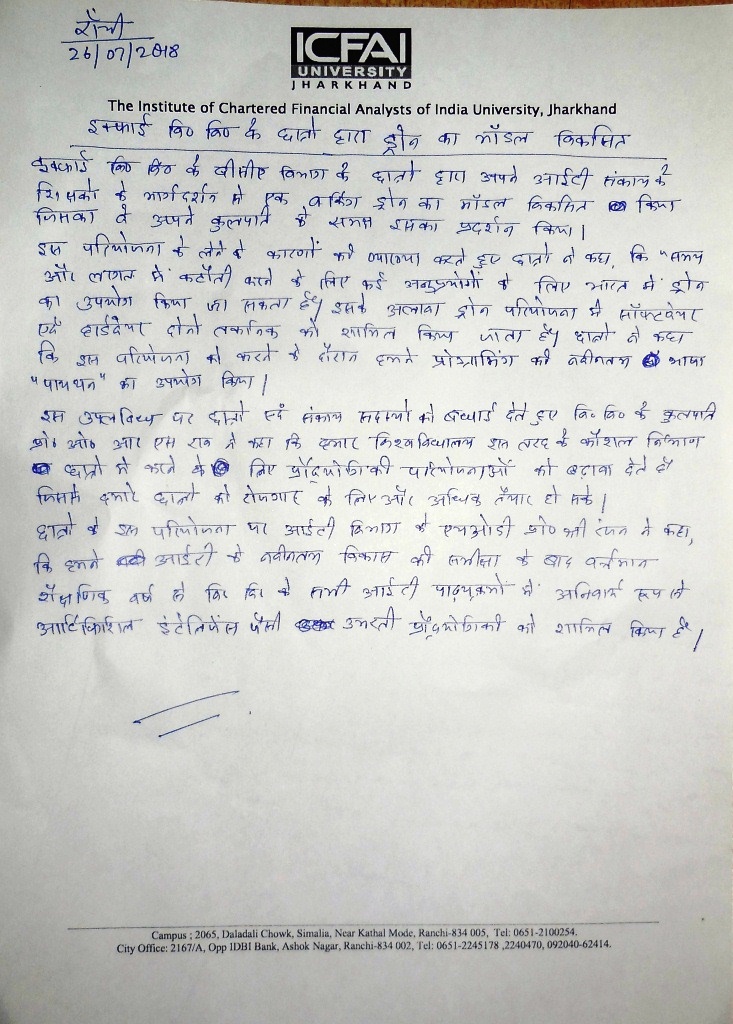 राँची
26/07/2018
ICFAI
UNIVERSITY
JHARKHAND
The Institute of Chartered Financial Analysts of India University, Jharkhand
इक्फाई वि० वि० के छात्रों द्वारा ड्रोन का मॉडल विकसित
इक्फाई वि० वि० के बीसीए विभाग के छात्रों द्वारा अपने आईटी संकाय के
शिक्षकों के मार्गदर्शन में एक वर्किंग ड्रोन का मॉडल विकसित किया
जिसका वे अपने कुलपति के समक्ष इसका प्रदर्शन किया|
इस परियोजना के लेने के कारणों की व्याख्या करते हुए छात्रों ने कहा, कि "समय
और लागत में कटौती करने के लिए कई अनुप्रयोगों के लिए भारत में ड्रोन
का उपयोग किया जा सकता है| इसके अलावा ड्रोन परियोजना में सॉफ्टवेयर
एवं हार्डवेयर दोनों तकनिक को शामिल किया जाता है| छात्रों ने कहा
कि इस परियोजना को करने के दौरान हमने प्रोग्रामिंग की नवीनतम भाषा
"पायथन" का उपयोग किया|
इस उपलब्धि पर छात्रों एवं संकाय सदस्यों को बधाई देते हुए वि० वि० के कुलपति
प्रो० ओ० आर एस राव ने कहा कि हमारे विश्वविद्यालय इस तरह के कौशल निर्माण
छात्रों में करने के लिए प्रौद्योगिकी परियोजनाओं को बढ़ावा देते हैं
जिससे हमारे छात्रों को रोजगार के लिए और अधिक तैयार हो सके|
छात्रों के इस परियोजना पर आईटी विभाग के एचओडी प्रो० श्री रंजन ने कहा,
कि हमने आईटी के नवीनतम विकास की समीक्षा के बाद वर्तमान
शैक्षणिक वर्ष से वि० वि० के सभी आईटी पाठ्यक्रमों में अनिवार्य रूप से
आर्टिफिशिल इंटेलिजेंस जैसी उभरती प्रौद्योगिकी को शामिल किया है|
Campus ; 2065, Daladali Chowk, Simalia, Near Kathal Mode, Ranchi-834 005, Tel: 0651-2100254.
City Office: 2167/A, Opp IDBI Bank, Ashok Nagar, Ranchi-834 002, Tel: 0651-2245178 ,2240470, 092040-62414.